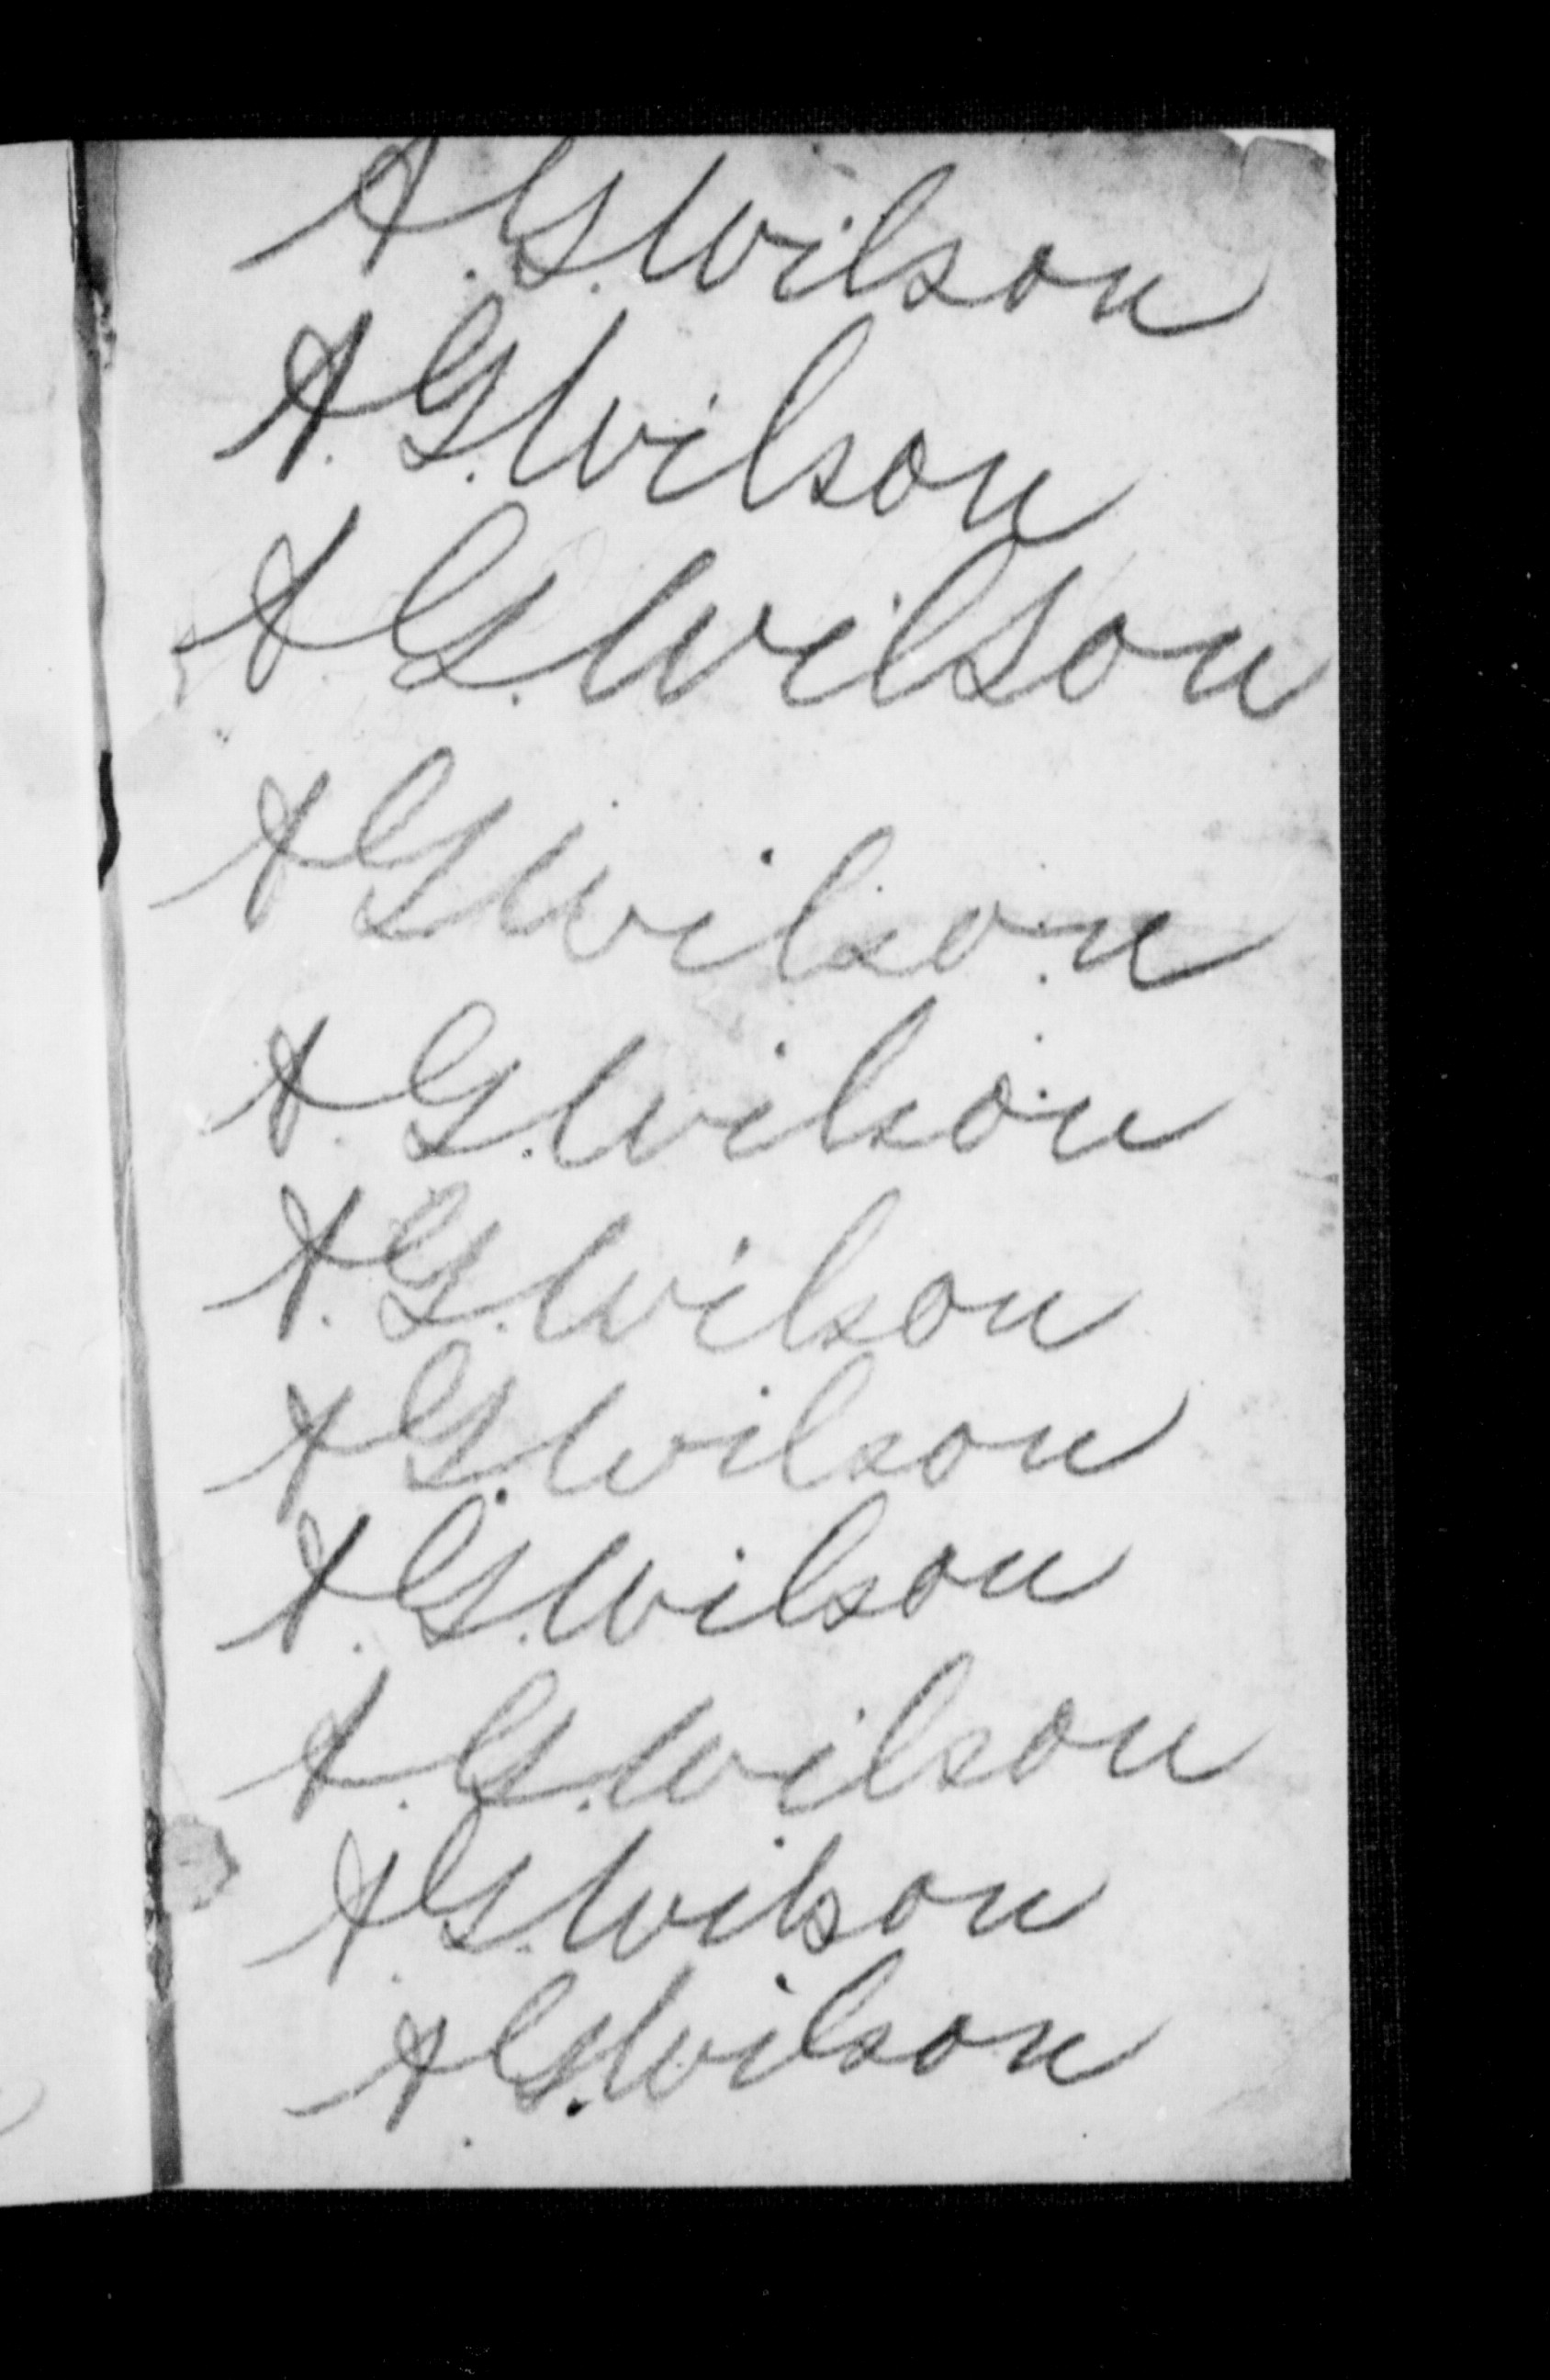 A. G. Wilson
A. G. Wilson
A. G. Wilson
A G Wilson
A. G. Wilson
A. G. Wilson
A G. Wilson
A. G. Wilson
A. G. Wilson
A. G. Wilson
A. G. Wilson